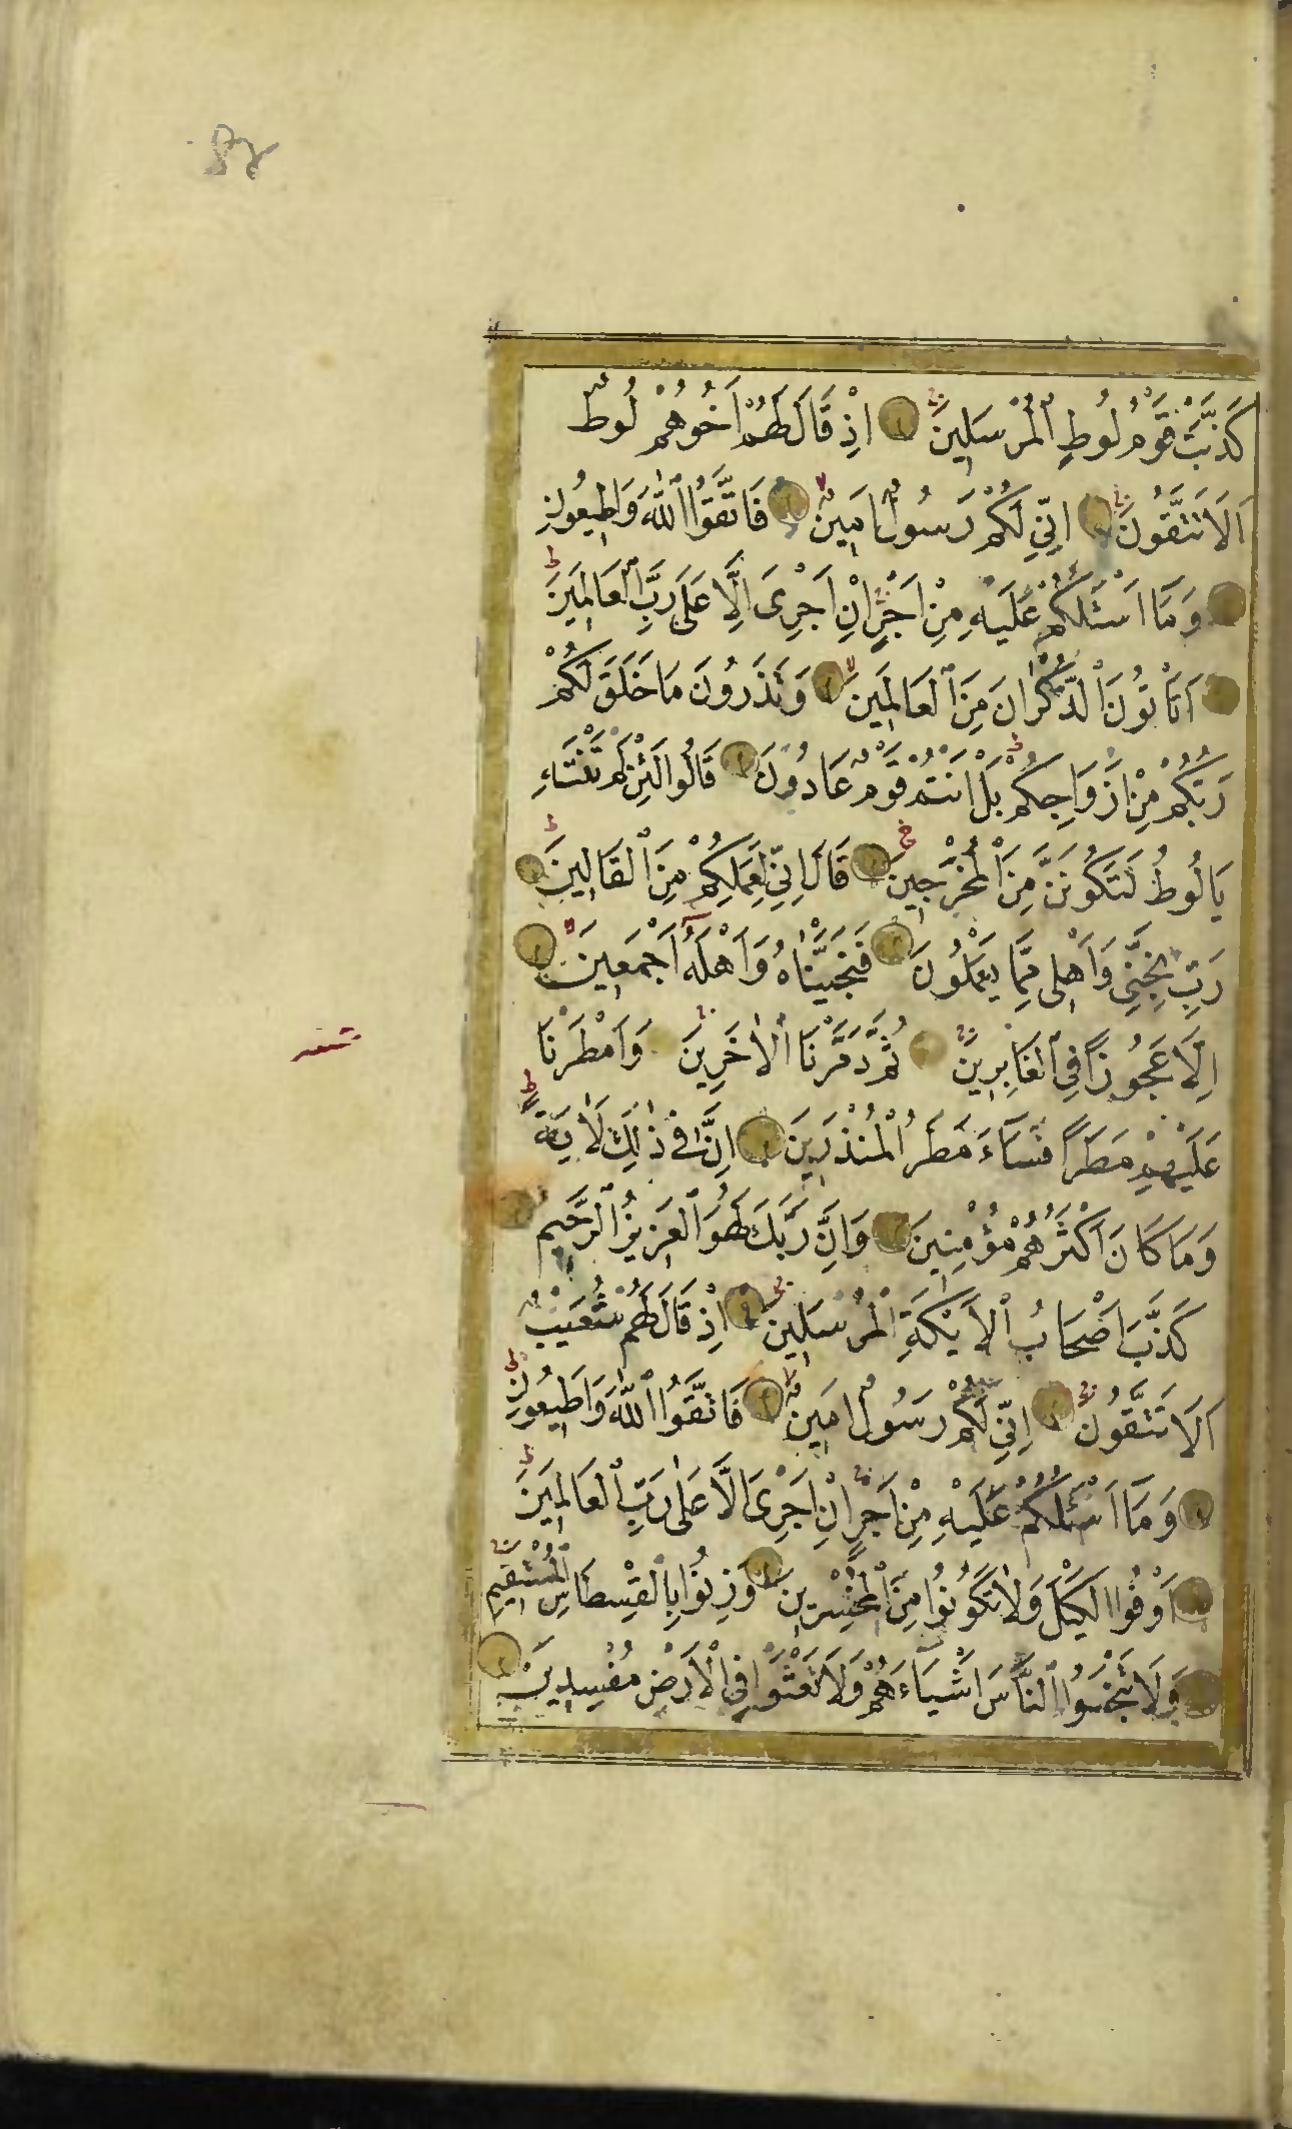 كَذَّبَتْ قَوْمُ لُوطٍ ٱلْمُرْسَلِينَ اِذْ قَالَ لَهُمْ اَخُوهُمْ لُوطٌ
اَلَا تَتَّقُونَ اِنِّي لَكُمْ رَسُولٌ اَمِينٌ فَاتَّقُوا ٱللّٰهَ وَاَطِيعُونِ
وَمَٓا اَسْـَٔلُكُمْ عَلَيْهِ مِنْ اَجْرٍ اِنْ اَجْرِىَ اِلَّا عَلَى رَبِّ ٱلْعَالَمِينَ
اَتَأْتُونَ ٱلذُّكْرَانَ مِنَ ٱلْعَالَمِينَ وَتَذَرُونَ مَا خَلَقَ لَكُمْ
رَبُّكُمْ مِنْ اَزْوَاجِكُمْ بَلْ اَنْتُمْ قَوْمٌ عَادُونَ قَالُوا لَئِنْ لَمْ تَنْتَهِ
يَا لُوطُ لَتَكُونَنَّ مِنَ ٱلْمُخْرَجِينَ قَالَ اِنِّي لِعَمَلِكُمْ مِنَ ٱلْقَالِينَ
رَبِّ نَجِّنِي وَاَهْلِى مِمَّا يَعْمَلُونَ فَنَجَّيْنَاهُ وَاَهْلَهُٓ اَجْمَعِينَ
اِلَّا عَجُوزًا فِي ٱلْغَابِرِينَ ثُمَّ دَمَّرْنَا ٱلْاٰخَرِينَ وَاَمْطَرْنَا
عَلَيْهِمْ مَطَرًا فَسَٓاءَ مَطَرُ ٱلْمُنْذَرِينَ اِنَّ فِي ذٰلِكَ لَاٰيَةً
وَمَا كَانَ اَكْثَرُهُمْ مُؤْمِنِينَ وَاِنَّ رَبَّكَ لَهُوَ ٱلْعَزِيزُ ٱلرَّحِيمُ
كَذَّبَ اَصْحَابُ ٱلْاَيْكَةِ ٱلْمُرْسَلِينَ اِذْ قَالَ لَهُمْ شُعَيْبٌ
اَلَا تَتَّقُونَ اِنِّي لَكُمْ رَسُولٌ اَمِينٌ فَاتَّقُوا ٱللّٰهَ وَاَطِيعُونِ
وَمَٓا اَسْـَٔلُكُمْ عَلَيْهِ مِنْ اَجْرٍ اِنْ اَجْرِىَ اِلَّا عَلٰى رَبِّ ٱلْعَالَمِينَ
اَوْفُوا ٱلْكَيْلَ وَلَا تَكُونُوا مِنَ ٱلْمُخْسِرِينَ وَزِنُوا بِالْقِسْطَاسِ ٱلْمُسْتَقِيمِ
وَلَا تَبْخَسُوا ٱلنَّاسَ اَشْيَٓاءَهُمْ وَلَا تَعْثَوْا فِي ٱلْاَرْضِ مُفْسِدِينَ